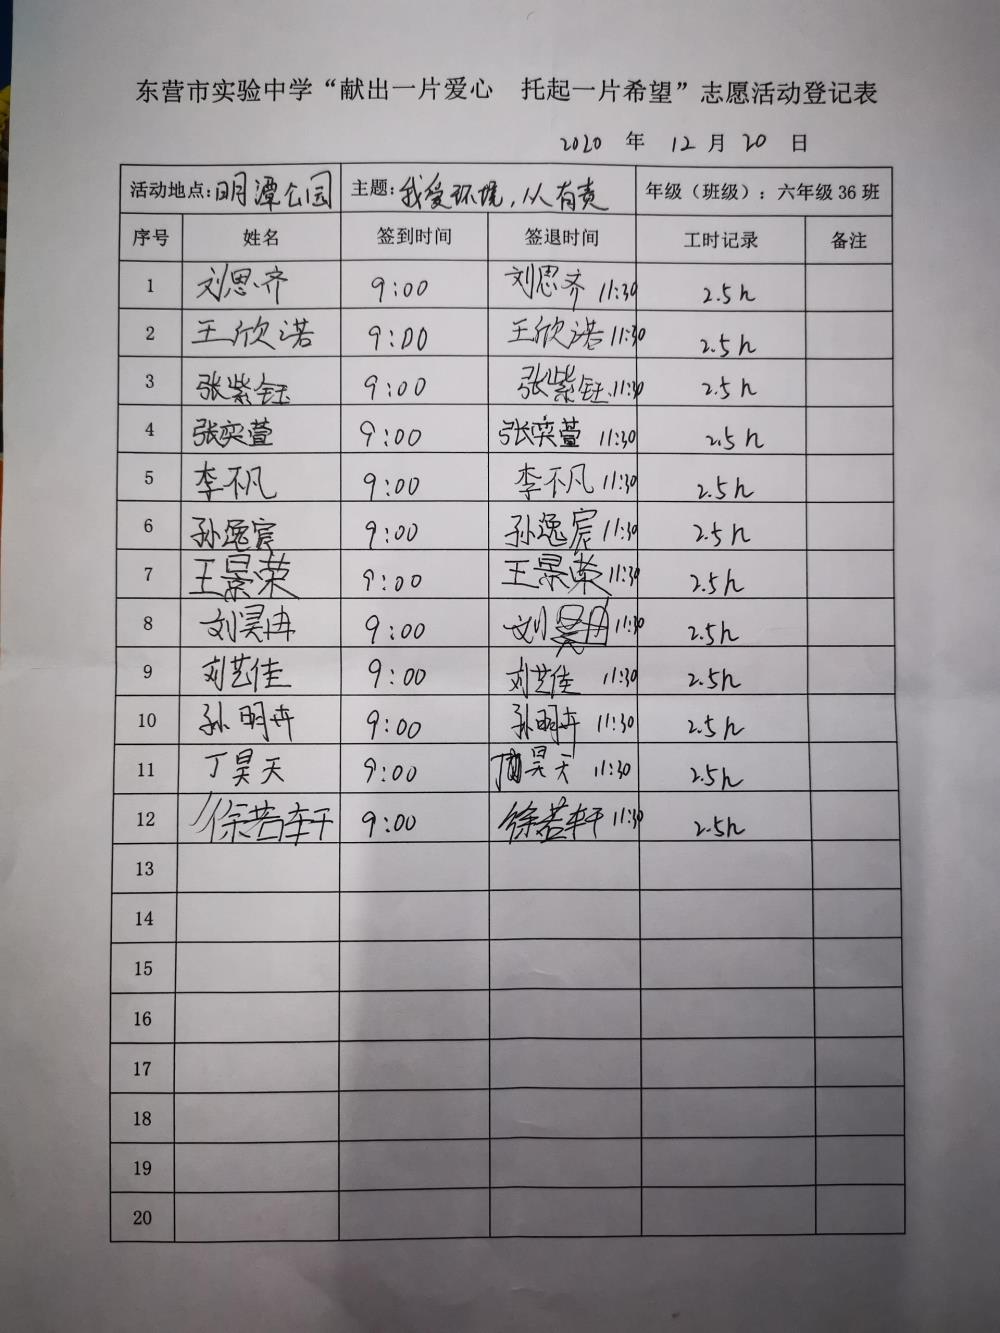 东营市实验中学“献出一片爱心 托起一片希望”志愿活动登记表
2020 年 12 月 20 日
活动地点:明潭公园 主题:我爱环境,从有责 年级(班级):六年级36班
序号 姓名 签到时间 签退时间 工时记录 备注
1 刘思齐 9:00 刘思齐 11:30 2.5h
2 王欣诺 9:00 王欣诺 11:30 2.5h
3 张紫钰 9:00 张紫钰 11:30 2.5h
4 张奕萱 9:00 张奕萱 11:30 2.5h
5 李不凡 9:00 李不凡 11:30 2.5h
6 孙逸宸 9:00 孙逸宸 11:30 2.5h
7 王景荣 9:00 王景荣 11:30 2.5h
8 刘昊冉 9:00 刘 11:30 2.5h
9 刘艺佳 9:00 刘艺佳 11:30 2.5h
10 孙明卉 9:00 孙明卉 11:30 2.5h
11 丁昊天 9:00 丁昊天 11:30 2.5h
12 徐若轩 9:00 徐若轩 11:30 2.5h
13
14
15
16
17
18
19
20